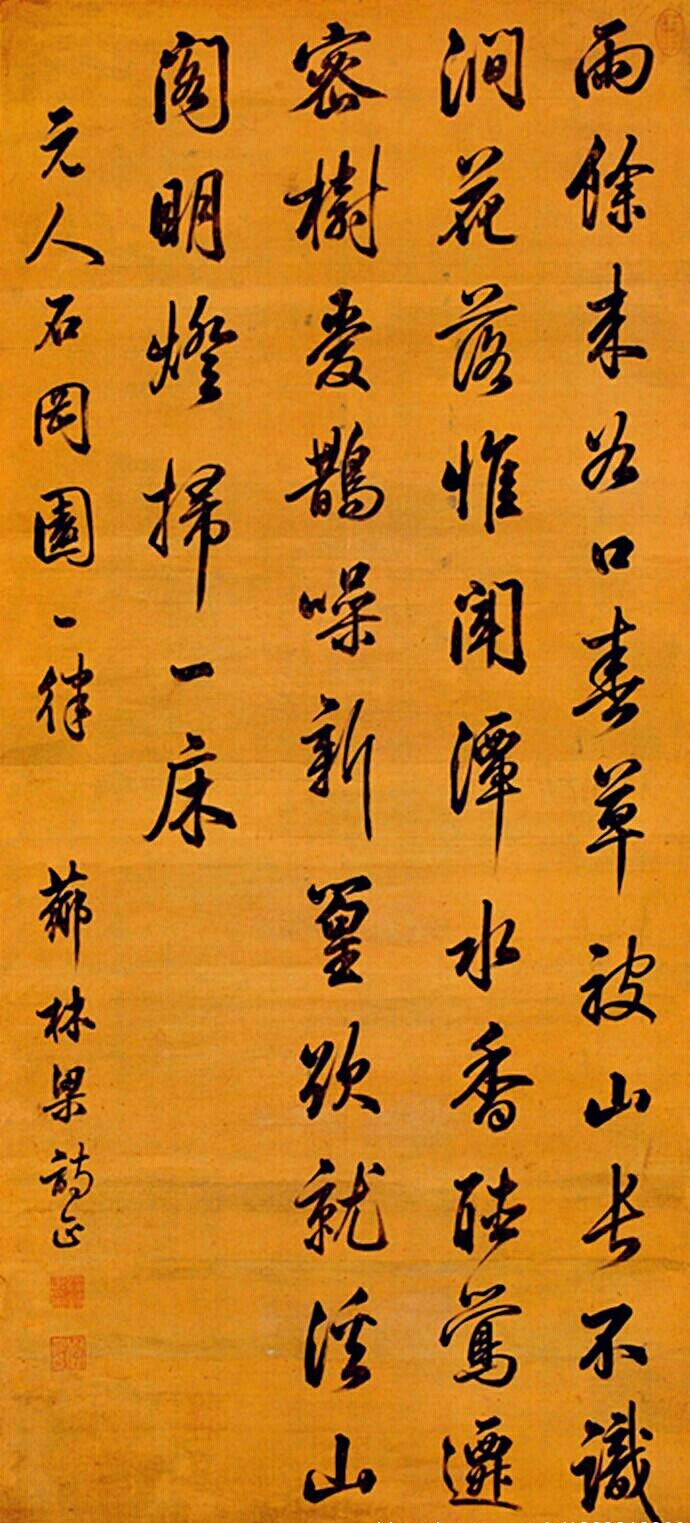 雨餘来谷口春草被山長不識
澗花落惟聞潭水香聽鶯遷
密樹愛鵲噪新篁欲就溪山
閣明燈掃一床
元人石岡園一律 薌林梁詩正